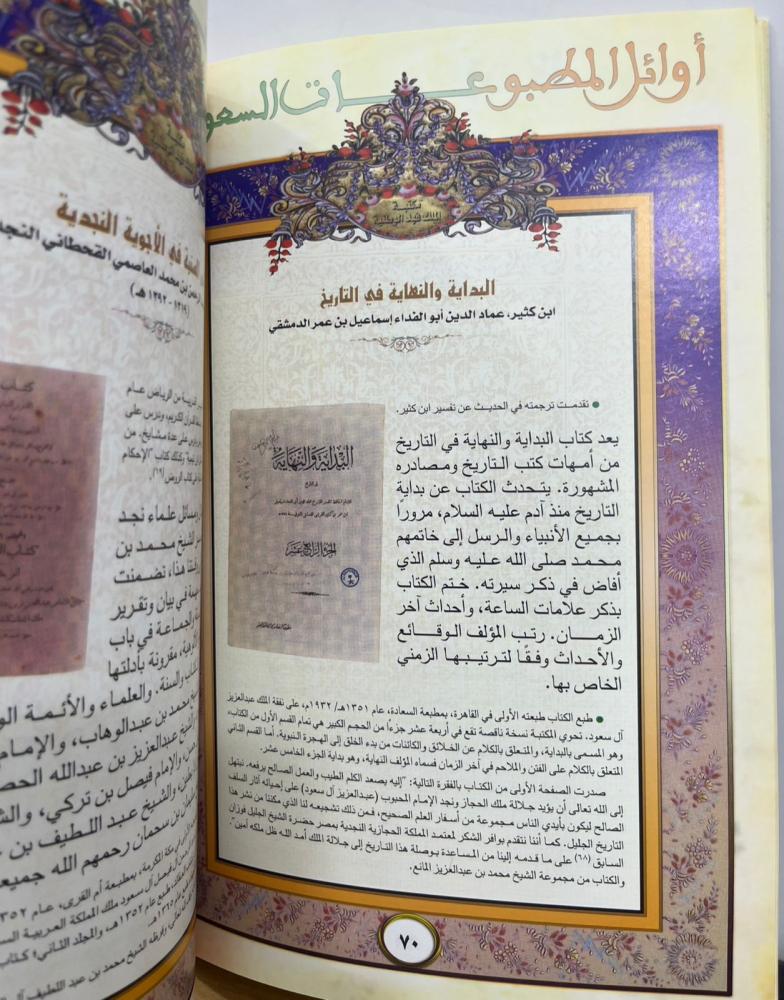 أوائل المطبوعات السعو
مكتبة
الملك فهد الوطنية
البداية والنهاية في التاريخ
ابن كثير، عماد الدين أبو الفداء إسماعيل بن عمر الدمشقي
● تقدمت ترجمته في الحديث عن تفسير ابن كثير.
يعد كتاب البداية والنهاية في التاريخ
من أمهات كتب التاريخ ومصادره
المشهورة. يتحدث الكتاب عن بداية
التاريخ منذ آدم عليه السلام، مرورا
بجميع الأنبياء والرسل إلى خاتمهم
محمد صلى الله عليه وسلم الذي
أفاض في ذكر سيرته. ختم الكتاب
بذكر علامات الساعة، وأحداث آخر
الزمان. رتب المؤلف الوقائع
والأحداث وفقًا لترتيبها الزمني
الخاص بها.
البداية والنهاية
في التاريخ
الجزء الرابع عشر
● طبع الكتاب طبعته الأولى في القاهرة، بمطبعة السعادة، عام ١٣٥١هـ/ ١٩٣٢م، على نفقة الملك عبدالعزيز
آل سعود. تحوي المكتبة نسخة ناقصة تقع في أربعة عشر جزءاً من الحجم الكبير هي تمام القسم الأول من الكتاب،
وهو المسمى بالبداية، والمتعلق بالكلام عن الخلائق والكائنات من بدء الخلق إلى الهجرة النبوية. أما القسم الثاني
المتعلق بالكلام على الفتن والملاحم في آخر الزمان فسماه المؤلف النهاية، وهو بداية الجزء الخامس عشر.
صدرت الصفحة الأولى من الكتاب بالفقرة التالية: "إليه يصعد الكلم الطيب والعمل الصالح يرفعه. نبتهل
إلى الله تعالى أن يؤيد جلالة ملك الحجاز ونجد الإمام المحبوب (عبدالعزيز آل سعود) على إحيائه آثار السلف
الصالح ليكون بأيدي الناس مجموعة من أسفار العلم الصحيح، فمن ذلك تشجيعه لنا الذي مكننا من نشر هذا
التاريخ الجليل. كما أننا نتقدم بوافر الشكر لمعتمد المملكة الحجازية النجدية بمصر حضرة الشيخ الجليل فوزان
السابق (٦٨) على ما قدمه إلينا من المساعدة بوصلة هذا التاريخ إلى جلالة الملك أمد الله ظل ملكه آمين".
والكتاب من مجموعة الشيخ محمد بن عبدالعزيز المانع.
٧٠
في الأجوبة النجدية
بن محمد العاصمي القحطاني النجد
(١٣١٩ - ١٣٩٢ هـ)
من الرياض عام
القرآن الكريم، ودرس على
على عدة مشايخ. من
وكذلك كتاب "الإحكام
كتاب الروض (٦٩).
مسائل علماء نجد
الشيخ محمد بن
هذا، تضمنت
في بيان وتقرير
والجماعة في باب
مقرونة بأدلتها
والسنة. والعلماء والأئمة الو
محمد بن عبدالوهاب، والإمام
الشيخ عبدالعزيز بن عبدالله الحص
والإمام فيصل بن تركي، والش
والشيخ عبد اللطيف بن ع
بن سحمان رحمهم الله جميعا
مكة المكرمة، بمطبعة أم القرى، عام ١٣٥٢
آل فيصل آل سعود ملك المملكة العربية الس
طبع عام ١٣٥٢هـ، والمجلد الثاني؛ كتاب
الشيخ محمد بن عبد اللطيف آل